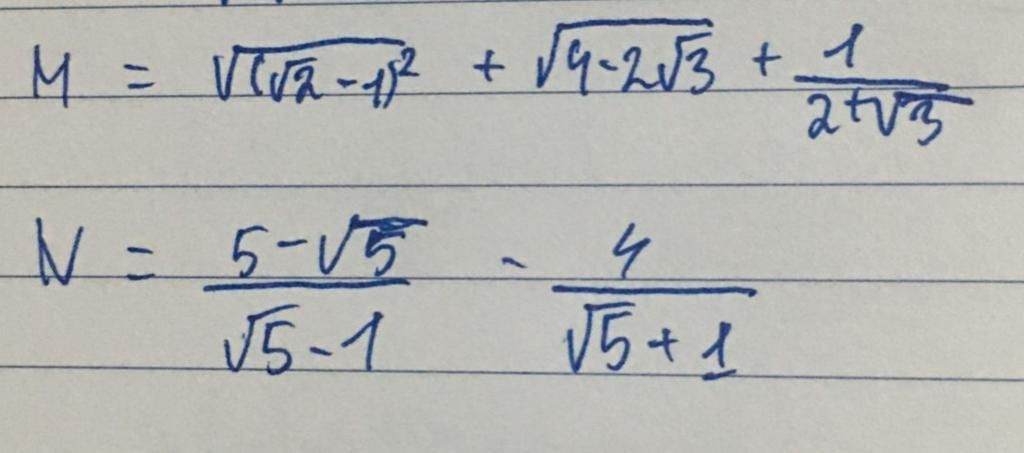 M = √(√2 - 1)² + √(4 - 2√3) + 1/(2+√3)
N = (5-√5)/(√5-1) - 4/(√5+1)